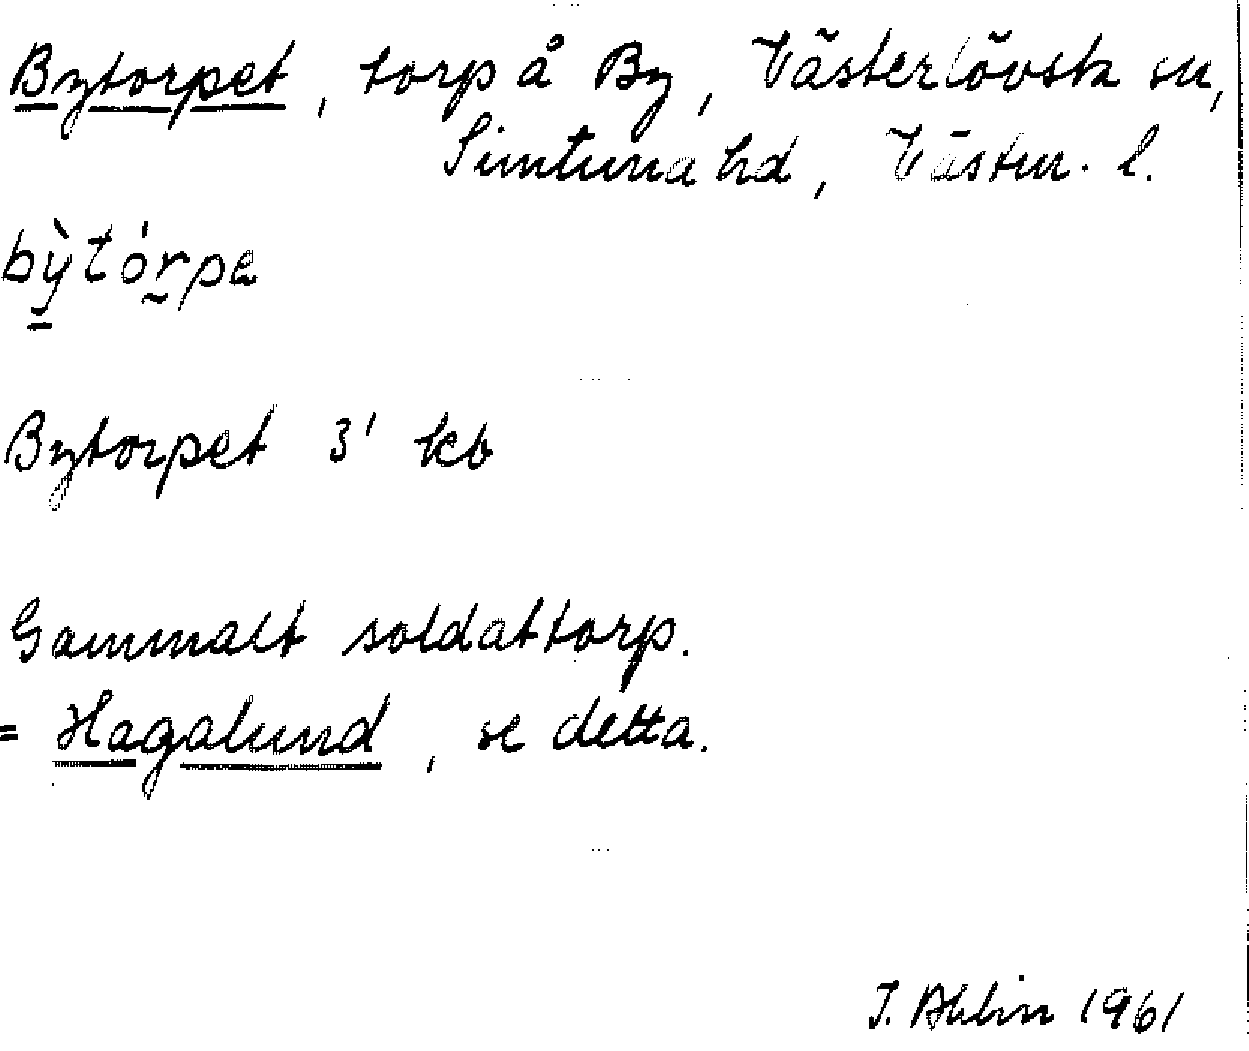 Bytorpet, torp å By, Västerlövsta sn,
Simtuna hd, Västm. l.
bỳtórpe
Bytorpet 3' kb
Gammalt soldattorp.
= Hagalund, se detta.
I. Ahlin 1961